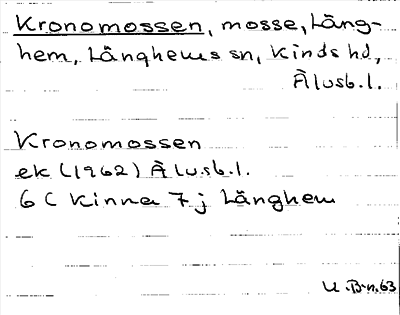 Kronomossen, mosse, Läng-
hem, Länghems sn, Kinds hd,
Älvsb. l.
Kronomossen
ek (1962) Älvsb. l.
6 C Kinna 7 j Länghem
U. B-n. 63